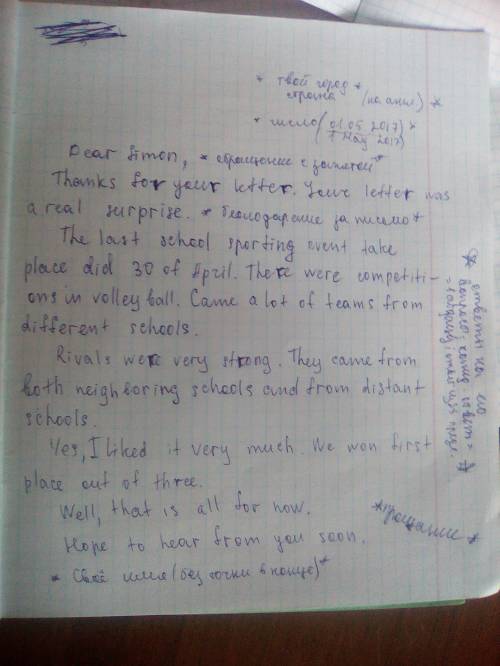 * твой город *
страна (на англ) *
* число (01.05.2017) *
1 May 2017)
Dear Simon, * обращение с запятой *
Thanks for your letter. Your letter was
a real surprise. * благодарение за письмо *
The last school sporting event take
place did 30 of April. There were competiti-
ons in volleyball. Came a lot of teams from
different schools.
Rivals were very strong. They came from
both neighboring schools and from distant
schools.
Yes, I liked it very much. We won first
place out of three.
Well, that is all for now.
Hope to hear from you soon.
* Своё имя (без точки в конце) *
* ответы на его
* прощание *